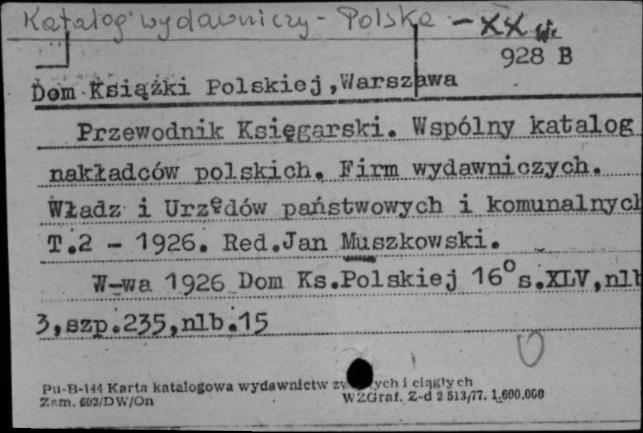 Katalog wydawniczy - Polska - XX w.
928 B
Dom Książki Polskiej, Warszawa
Przewodnik Księgarski. Wspólny katalog
nakładców polskich. Firm wydawniczych.
Władz i Urzędów państwowych i komunalnych
T.2 - 1926. Red.Jan Muszkowski.
W-wa 1926 Dom Ks.Polskiej 16° s.XLV,nlb
3,szp.235,nlb.15
Pu-B-144 Karta katalogowa wydawnictw zwartych i ciągłych
Zam. 603/DW/On WZGraf. Z-d 2 513/77. 1.600.000